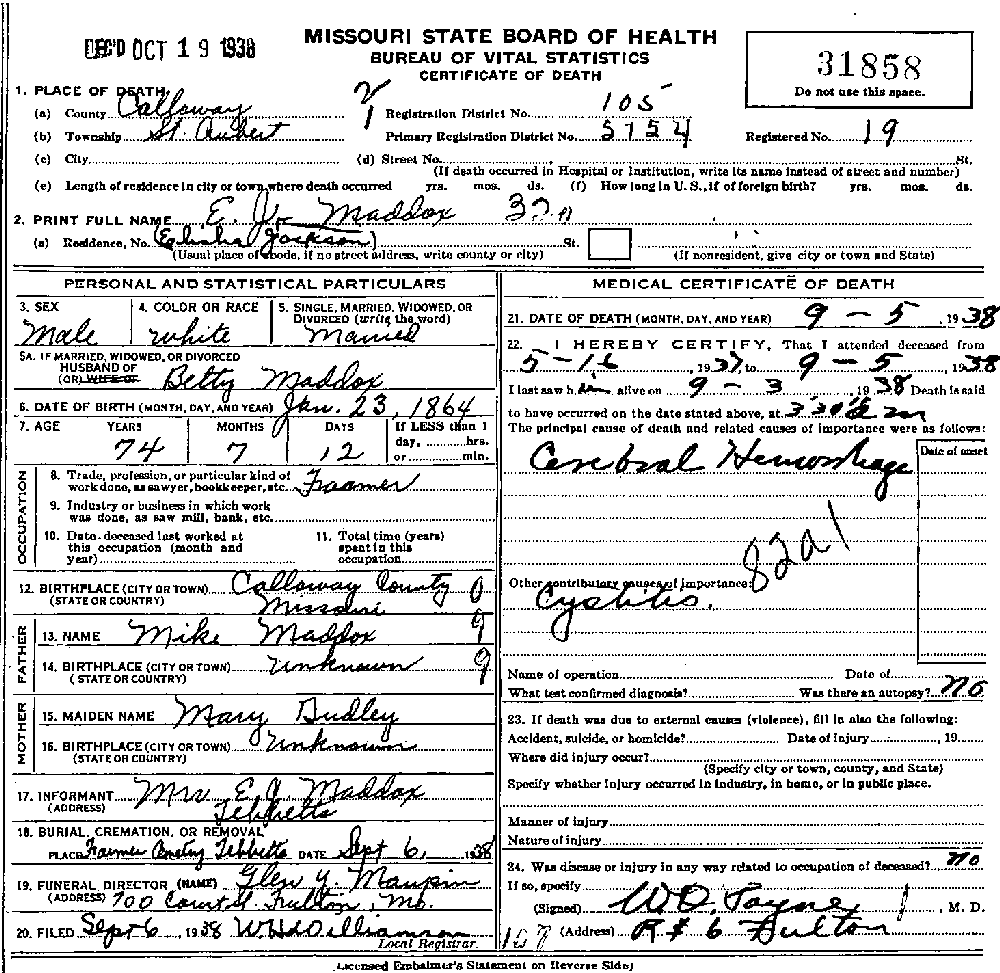 REC'D OCT 19 1938
MISSOURI STATE BOARD OF HEALTH
BUREAU OF VITAL STATISTICS
CERTIFICATE OF DEATH
31858
Do not use this space.
1. PLACE OF DEATH
(a) County Callaway Registration District No. 105
(b) Township St. Aubert Primary Registration District No. 5154 Registered No. 19
(c) City (d) Street No. St.
(If death occurred in Hospital or Institution, write its name instead of street and number)
(e) Length of residence in city or town where death occurred yrs. mos. ds. (f) How long in U. S., if of foreign birth? yrs. mos. ds.
2. PRINT FULL NAME E. J. Maddox 320
(a) Residence, No. (Elisha Jackson) St.
(Usual place of abode, if no street address, write county or city) (If nonresident, give city or town and State)
PERSONAL AND STATISTICAL PARTICULARS
3. SEX 4. COLOR OR RACE 5. SINGLE, MARRIED, WIDOWED, OR DIVORCED (write the word)
Male White Married
5A. IF MARRIED, WIDOWED, OR DIVORCED
HUSBAND OF
(OR) WIFE OF Betty Maddox
6. DATE OF BIRTH (MONTH, DAY, AND YEAR) Jan. 23, 1864
7. AGE YEARS MONTHS DAYS If LESS than 1
74 7 12 day, hrs.
or min.
OCCUPATION
8. Trade, profession, or particular kind of
work done, as sawyer, bookkeeper, etc. Farmer
9. Industry or business in which work
was done, as saw mill, bank, etc.
10. Date deceased last worked at
this occupation (month and
year)
11. Total time (years)
spent in this
occupation
12. BIRTHPLACE (CITY OR TOWN) Callaway County 0
(STATE OR COUNTRY) Missouri
FATHER
13. NAME Mike Maddox 9
14. BIRTHPLACE (CITY OR TOWN) Unknown 9
(STATE OR COUNTRY)
MOTHER
15. MAIDEN NAME Mary Dudley
16. BIRTHPLACE (CITY OR TOWN) Unknown
(STATE OR COUNTRY)
17. INFORMANT Mrs E. J. Maddox
(ADDRESS) Tebbetts
18. BURIAL, CREMATION, OR REMOVAL
PLACE Tebbetts DATE Sept 6, 1938
19. FUNERAL DIRECTOR (NAME) Glen Y. Maupin
(ADDRESS) 700 Court St. Fulton, Mo.
20. FILED Sept 6, 1938 W. H. Williamson
Local Registrar.
MEDICAL CERTIFICATE OF DEATH
21. DATE OF DEATH (MONTH, DAY, AND YEAR) 9 - 5, 1938
22. I HEREBY CERTIFY, That I attended deceased from
5-16, 1937 to 9 - 5, 1938
I last saw him alive on 9 - 3, 1938 Death is said
to have occurred on the date stated above, at 3:30 m
The principal cause of death and related causes of importance were as follows:
Date of onset
Cerebral Hemorrhage
82a1
Other contributory causes of importance:
Cystitis.
Name of operation Date of
What test confirmed diagnosis? Was there an autopsy? No
23. If death was due to external causes (violence), fill in also the following:
Accident, suicide, or homicide? Date of injury , 19
Where did injury occur?
(Specify city or town, county, and State)
Specify whether injury occurred in industry, in home, or in public place.
Manner of injury
Nature of injury
24. Was disease or injury in any way related to occupation of deceased? No
If so, specify
(Signed) W. D. Payne, M. D.
(Address) R # 6 Fulton
Licensed Embalmer's Statement on Reverse Side)